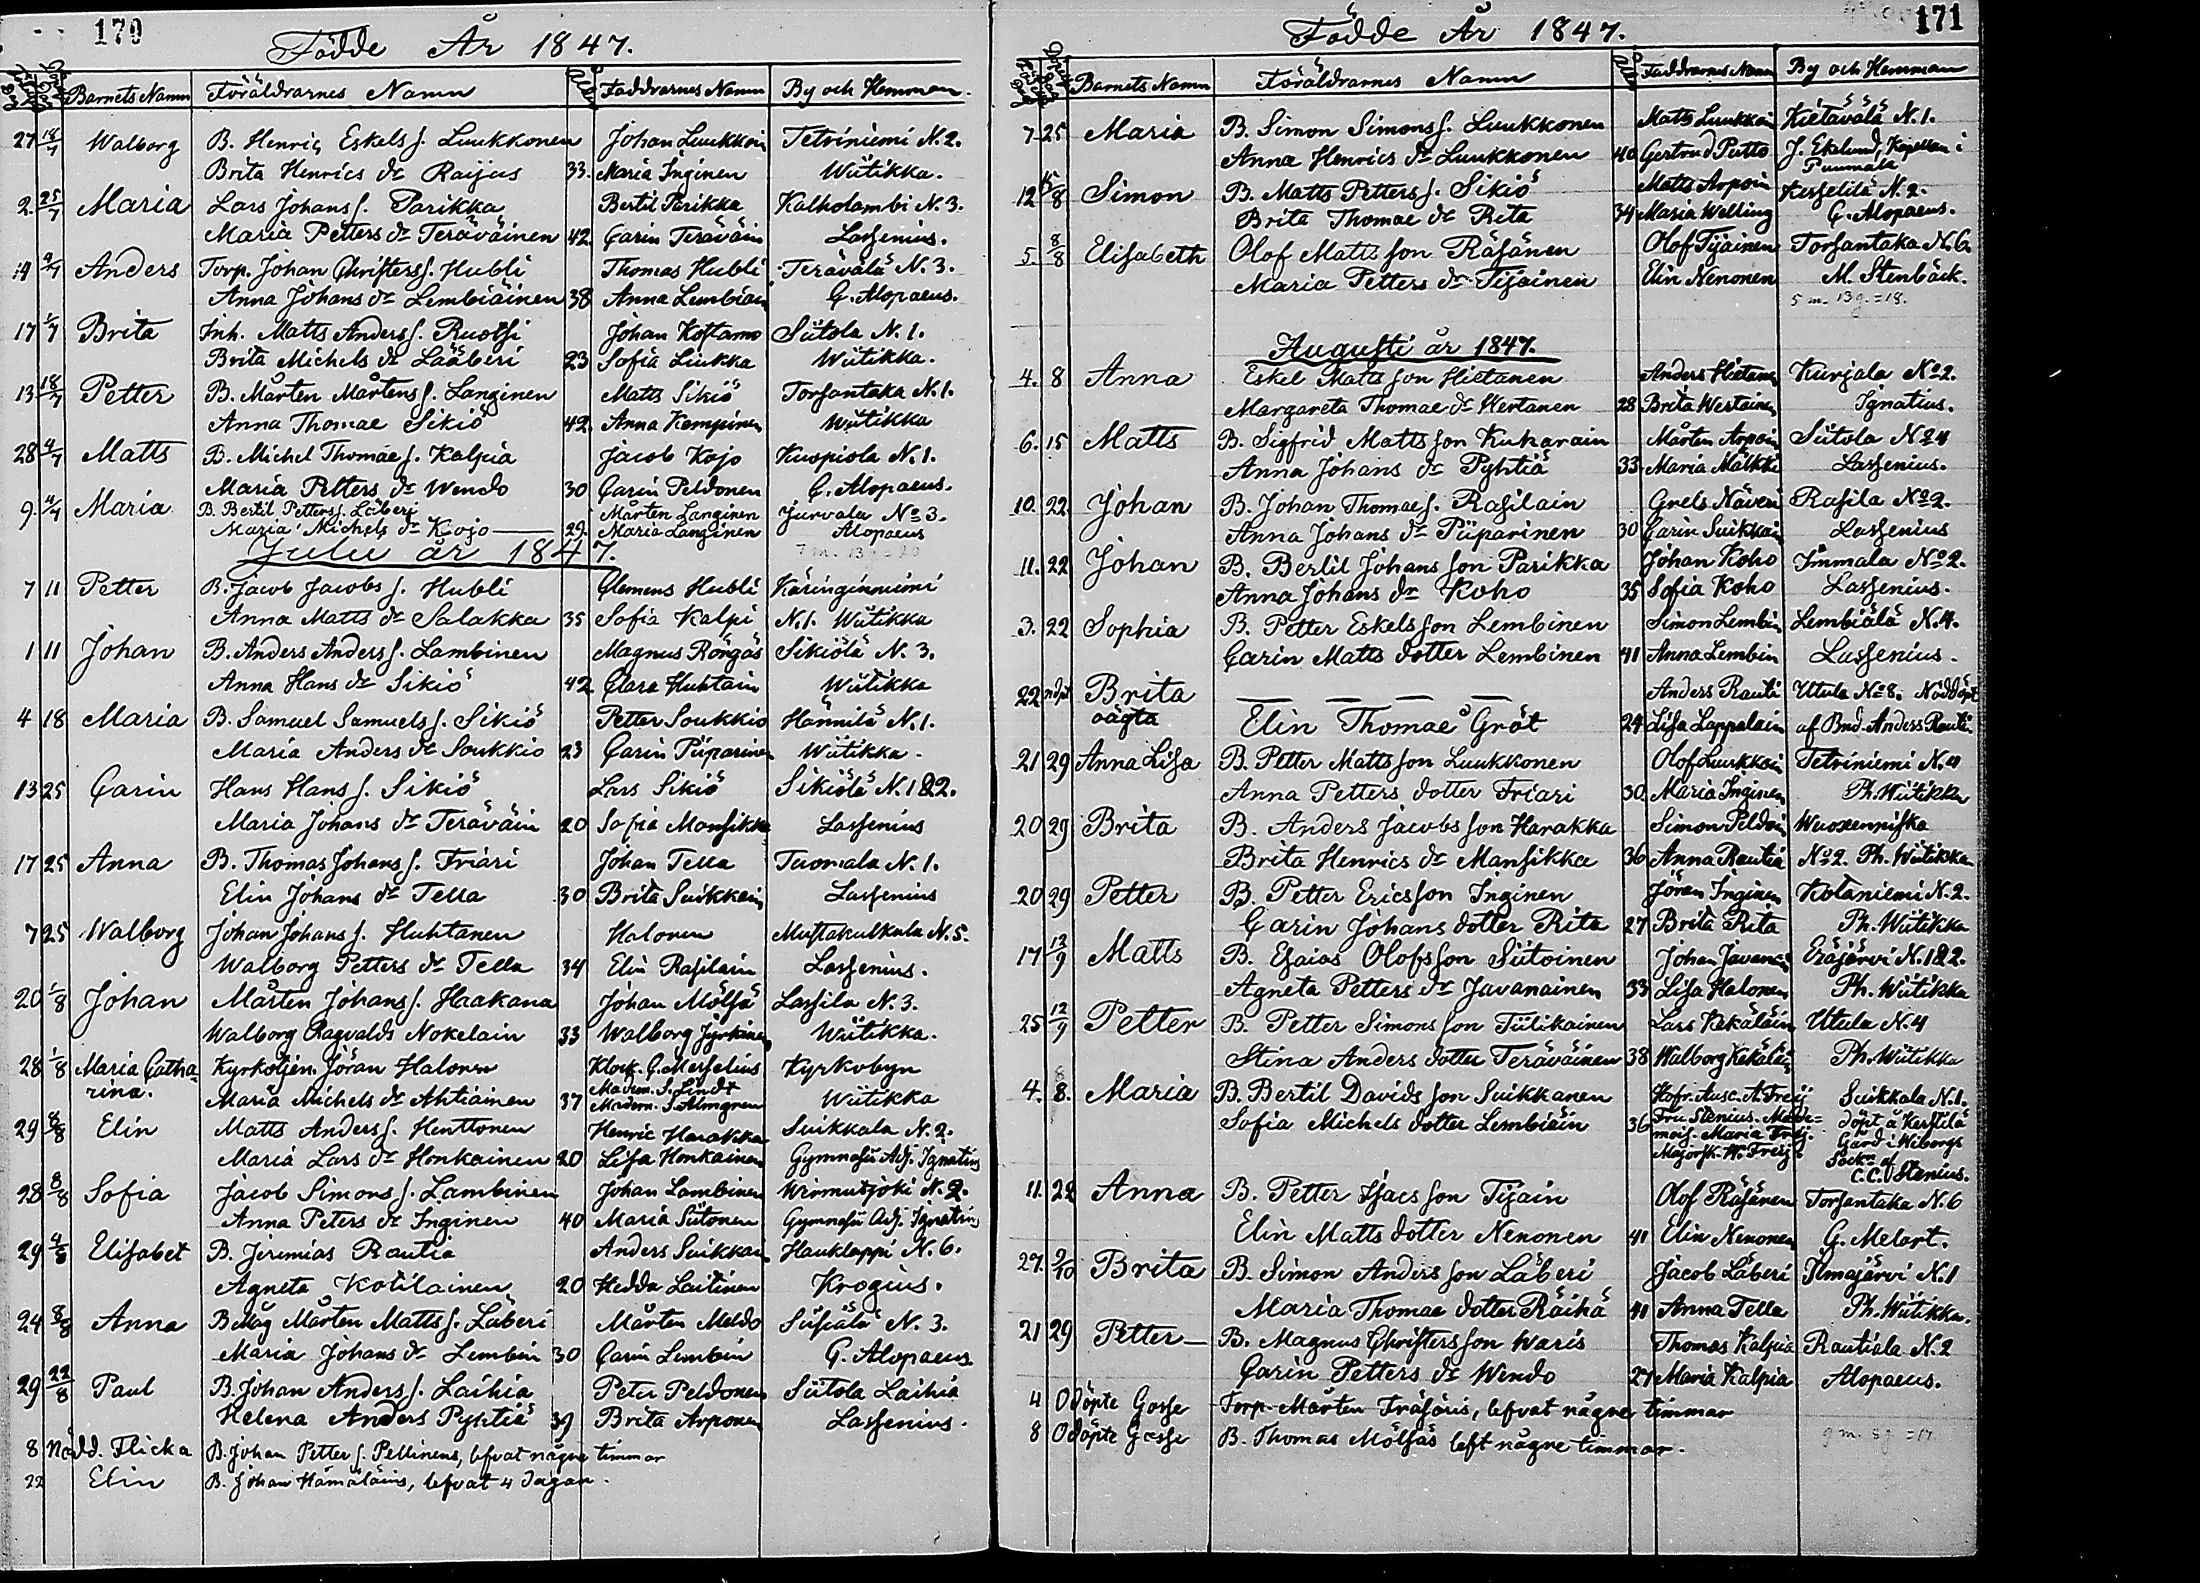 170
Födde År 1847.
Barnets Namn Föräldrarnes Namn Ålder Faddrarnes Namn By och Hemman.
27 18/7 Walborg B. Henric Eskels s. Luukkonen Johan Luukkoin Tetriniemi N. 2.
Brita Henrics dr Raijus 33. Maria Inginen Wiitikka.
2. 25/7 Maria Lars Johans s. Parikka Bertil Parikka Kalholambi N. 3.
Maria Petters dr Teräväinen 42. Carin Teräväin Lassenius.
14 4/7 Anders Torp. Johan Christers s. Hubli Thomas Hubli Terävälä N. 3.
Anna Johans dr Lembiäinen 38 Anna Lembiäin G. Alopaeus.
17 1/7 Brita Inh. Matts Anders s. Ruotsi Johan Kostamo Siitola N. 1.
Brita Michels dr Lääberi 23 Sofia Liukka Wiitikka.
13 18/7 Petter B. Mårten Mårtens s. Langinen Matts Sikiö Torsantaka N. 1.
Anna Thomae Sikiö 42. Anna Kempinen Wiitikka
28 4/7 Matts B. Michel Thomae s. Kalpia Jacob Kojo Kuopiola N. 1.
Maria Petters dr Wendo 30 Carin Peldonen G. Alopaeus.
9. 4/7 Maria B. Bertil Petters s. Läberi Mårten Langinen Jurvala No 3.
Maria Michels dr Kojo 29. Maria Langinen Alopaeus
Julii år 1847. 7 m. 13 g. = 20
7 11 Petter B. Jacob Jacobs s. Hubli Clemens Hubli Käringinniemi
Anna Matts dr Salakka 35 Sofia Kalpi N. 1. Wiitikka
1 11 Johan B. Anders Anders s. Lambinen Magnus Röngäs Sikiölä N. 3.
Anna Hans dr Sikiö 42 Clara Huhtain Wiitikka
4 18 Maria B. Samuel Samuels s. Sikiö Petter Soukkio Hännilä N. 1.
Maria Anders dr Soukkio 23 Carin Piiparinen Wiitikka.
13 25 Carin Hans Hans s. Sikiö Lars Sikiö Sikiölä N. 1 & 2.
Maria Johans dr Teräväin 20 Sofia Mansikka Lassenius
17 25 Anna B. Thomas Johans s. Friari Johan Tella Tuomala N. 1.
Elin Johans dr Tella 30 Brita Suikkain Lassenius
7 25 Walborg Johan Johans s. Huhtanen Halonen Mustakulkula N. 5.
Walborg Petters dr Tella 34 Elin Rasilain Lassenius.
20 1/8 Johan Mårten Johans s. Haakana Johan Mölsä Lassila N. 3.
Walborg Ragvalds Nokelain 33 Walborg Jyrkinen Wiitikka.
28 1/8 Maria Catha- Kyrkotjen. Jöran Halonen Klock. G. Merselius Kyrkobyn
rina. Maria Michels dr Ahtiainen 37 Madem. S. Lindt
Madem. S. Almgren Wiitikka
29 8/8 Elin Matts Anders s. Henttonen Henric Harakka Suikkala N. 2.
Maria Lars dr Honkainen 20 Lisa Honkainen Gymnasii Adj. Ignatius
28 8/8 Sofia Jacob Simons s. Lambinen Johan Lambinen Wirmutjoki N. 2.
Anna Peters dr Inginen 40 Maria Siitonen Gymnasii Adj. Ignatius
29 4/8 Elisabet B. Jeremias Rautia Anders Suikkain Hauklappi N. 6.
Agneta Kotilainen 20 Hedda Laitinen Krogius.
24 8/8 Anna B. Måg Mårten Matts s. Läberi Mårten Meldo Siisiälä N. 3.
Maria Johans dr Lembin 30 Carin Lembin G. Alopaeus.
29 22/8 Paul B. Johan Anders s. Laihia Peter Peldonen Siitola Laihia
Helena Anders Pyhtiä 39 Brita Arponen Lassenius.
8 Nödd. Flicka B. Johan Petter s. Pellinens, lefvat några timmar
22 Elin B. Johan Hämäläins, lefvat 4 Dagar.
171
Födde År 1847.
Barnets Namn Föräldrarnes Namn Ålder Faddrarnes Namn By och Hemman
7 25 Maria B. Simon Simons s. Luukkonen Matts Luukkain Kietävälä N. 1.
Anna Henrics dr Luukkonen 40 Gertrud Putto J. Ekelund, Kapellan i
Puumala
12 15/8 Simon B. Matts Petters s. Sikiö Matts Arpoin Kesselilä N. 2.
Brita Thomae dr Rita 34 Maria Welling G. Alopaeus.
5 8/8 Elisabeth Olof Matts son Räsänen Olof Tijainen Torsantaka N. 6.
Maria Petters dr Tijainen Elin Nenonen M. Stenbäck.
5 m. 13 g. = 18.
Augusti år 1847.
4. 8 Anna Eskel Matts son Hietanen Anders Hietanen Kurjala No 2.
Margareta Thomae dr Hertanen 28 Brita Wertainen Ignatius.
6. 15 Matts B. Sigfrid Matts son Kuharain Mårten Arpoin Siitola N 24
Anna Johans dr Pyhtiä 33 Maria Mälkki Lassenius.
10. 22 Johan B. Johan Thomae s. Rasilain Grels Näveri Rasila No 2.
Anna Johans dr Piiparinen 30 Carin Suikkain Lassenius
11. 22 Johan B. Bertil Johans son Parikka Johan Koho Immala No 2.
Anna Johans dr Koho 35 Sofia Koho Lassenius.
3. 22 Sophia B. Petter Eskels son Lembinen Simon Lembin Lembiälä N. 4.
Carin Matts dotter Lembinen 41 Anna Lembin Lassenius.
22 ndpt Brita Anders Rauti Utula No 8. Nöddöpt
oägta Elin Thomae Gröt 24 Lisa Lappalain af Bnd. Anders Rauti.
21 29 Anna Lisa B. Petter Matts son Luukkonen Olof Luukkoin Tetriniemi N. 4
Anna Petters dotter Friari 30 Maria Inginen Ph. Wiitikka
20 29 Brita B. Anders Jacobs son Harakka Simon Peldoin Wuoxenniska
Brita Henrics dr Mansikka 36 Anna Rautia No 2. Ph. Wiitikka
20 29 Petter B. Petter Ericsson Inginen Jöran Inginen Kotaniemi N. 2.
Carin Johans dotter Rita 27 Brita Rita Ph. Wiitikka
17 12/9 Matts B. Esaias Olofsson Siitoinen Johan Javanain Eräjärvi N. 1 & 2.
Agneta Petters dr Javanainen 33 Lisa Halonen Ph. Wiitikka
25 12/9 Petter B. Petter Simons son Tiilikainen Lars Kekäläin Utula N. 4
Stina Anders dotter Teräväinen 38 Walborg Kekäläin Ph. Wiitikka
4. 8/8. Maria B. Bertil Davids son Suikkanen Hofr. Ausc. A. Freij Suikkala N. 1.
Sofia Michels dotter Lembiäin 36 Fru Stenius. Made- döpt å Kerstilä
mois. Maria Freij. Gård i Wiborgs
Majorsk. W. Freij Sockn af
C. C. Stenius.
11. 22 Anna B. Petter Isacs son Tijain Olof Räsänen Torsantaka N. 6
Elin Matts dotter Nenonen 41 Elin Nenonen G. Melart.
27. 9/10 Brita B. Simon Anders son Läberi Jacob Läberi Ilmajärvi N. 1
Maria Thomae dotter Räihä 41 Anna Tella Ph. Wiitikka.
21 29 Petter B. Magnus Christers son Waris Thomas Kalpia Rautiala N. 2
Carin Petters dr Wendo 27 Maria Kalpia Alopaeus.
4 Odöpte Gosse Torp. Mårten Fräsäris, lefvat någre timmar
8 Odöpte Gosse B. Thomas Mölsäs left någre timmar. 9 m. 8 g. = 17